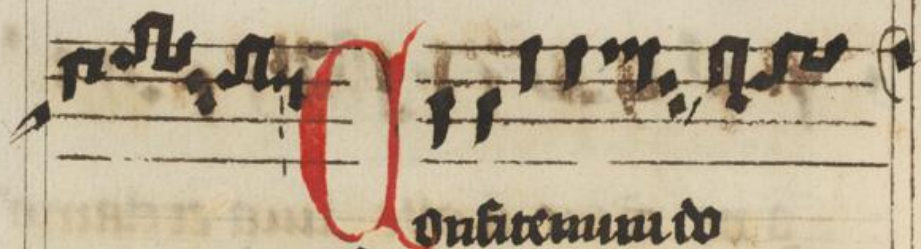 Confitemini do